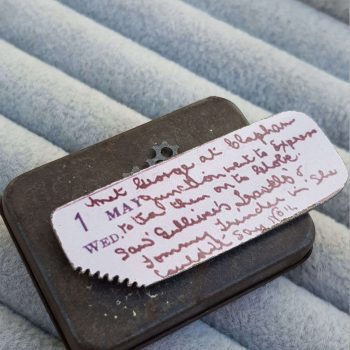 Met George at Clapham
1 MAY Junction went to Express
WED. to tea then on to Globe
Saw Gulliver's Travels &
Tommy Trinder in She
couldn't Say No